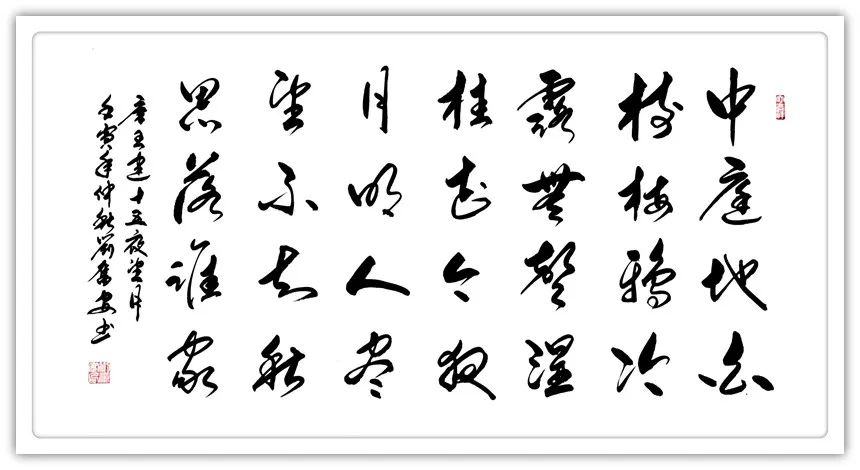 中庭地白
树栖鸦冷
露無聲湿
桂花今夜
月明人尽
望不知秋
思落谁家
唐王建十五夜望月
壬寅年仲秋劉安书